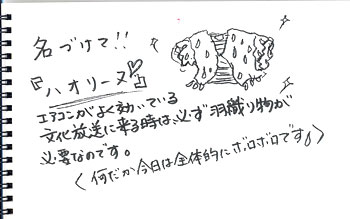 名づけて!!
『ハオリーヌ』
エアコンがよく効いている
文化放送に来る時は、必ず羽織り物が
必要なのです。
<何だか今日は全体的にボロボロです♪